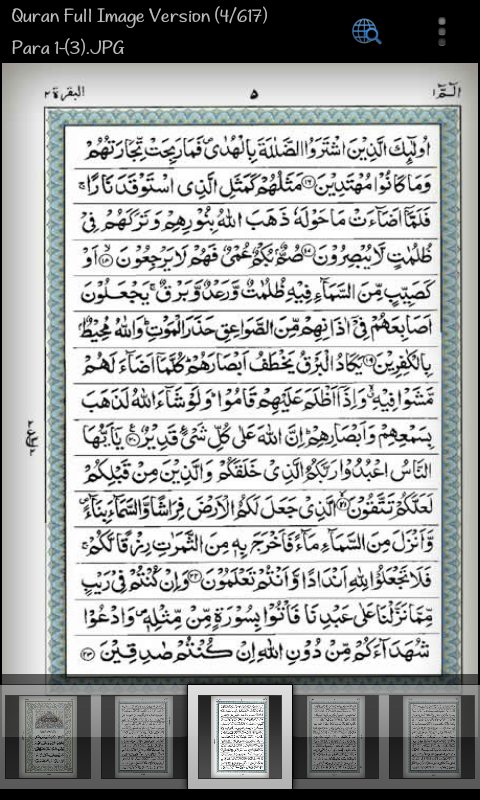 Quran Full Image Version (4/617)
Para 1-(3).JPG
البقرة ٢
٥
الٓمّٓ ١
اُولٰٓئِكَ الَّذِيْنَ اشْتَرَوُا الضَّلٰلَةَ بِالْهُدٰى فَمَا رَبِحَتْ تِّجَارَتُهُمْ
وَمَا كَانُوْا مُهْتَدِيْنَ ﴿١٦﴾ مَثَلُهُمْ كَمَثَلِ الَّذِى اسْتَوْقَدَ نَارًا ۚ
فَلَمَّآ اَضَآءَتْ مَا حَوْلَهٗ ذَهَبَ اللّٰهُ بِنُوْرِهِمْ وَتَرَكَهُمْ فِىْ
ظُلُمٰتٍ لَّا يُبْصِرُوْنَ ﴿١٧﴾ صُمٌّۢ بُكْمٌ عُمْىٌ فَهُمْ لَا يَرْجِعُوْنَ ﴿١٨﴾ اَوْ
كَصَيِّبٍ مِّنَ السَّمَآءِ فِيْهِ ظُلُمٰتٌ وَّرَعْدٌ وَّبَرْقٌ ۚ يَجْعَلُوْنَ
اَصَابِعَهُمْ فِىْٓ اٰذَانِهِمْ مِّنَ الصَّوَاعِقِ حَذَرَ الْمَوْتِ ؕ وَاللّٰهُ مُحِيْطٌۢ
بِالْكٰفِرِيْنَ ﴿١٩﴾ يَكَادُ الْبَرْقُ يَخْطَفُ اَبْصَارَهُمْ ؕ كُلَّمَآ اَضَآءَ لَهُمْ
مَّشَوْا فِيْهِ ۙ وَاِذَآ اَظْلَمَ عَلَيْهِمْ قَامُوْا ؕ وَلَوْ شَآءَ اللّٰهُ لَذَهَبَ
بِسَمْعِهِمْ وَاَبْصَارِهِمْ ؕ اِنَّ اللّٰهَ عَلٰى كُلِّ شَىْءٍ قَدِيْرٌ ﴿٢٠﴾ يٰٓاَيُّهَا
النَّاسُ اعْبُدُوْا رَبَّكُمُ الَّذِىْ خَلَقَكُمْ وَالَّذِيْنَ مِنْ قَبْلِكُمْ
لَعَلَّكُمْ تَتَّقُوْنَ ﴿٢١﴾ الَّذِىْ جَعَلَ لَكُمُ الْاَرْضَ فِرَاشًا وَّالسَّمَآءَ بِنَآءً
وَّاَنْزَلَ مِنَ السَّمَآءِ مَآءً فَاَخْرَجَ بِهٖ مِنَ الثَّمَرٰتِ رِزْقًا لَّكُمْ ۚ
فَلَا تَجْعَلُوْا لِلّٰهِ اَنْدَادًا وَّاَنْتُمْ تَعْلَمُوْنَ ﴿٢٢﴾ وَاِنْ كُنْتُمْ فِىْ رَيْبٍ
مِّمَّا نَزَّلْنَا عَلٰى عَبْدِنَا فَاْتُوْا بِسُوْرَةٍ مِّنْ مِّثْلِهٖ وَادْعُوْا
شُهَدَآءَكُمْ مِّنْ دُوْنِ اللّٰهِ اِنْ كُنْتُمْ صٰدِقِيْنَ ﴿٢٣﴾